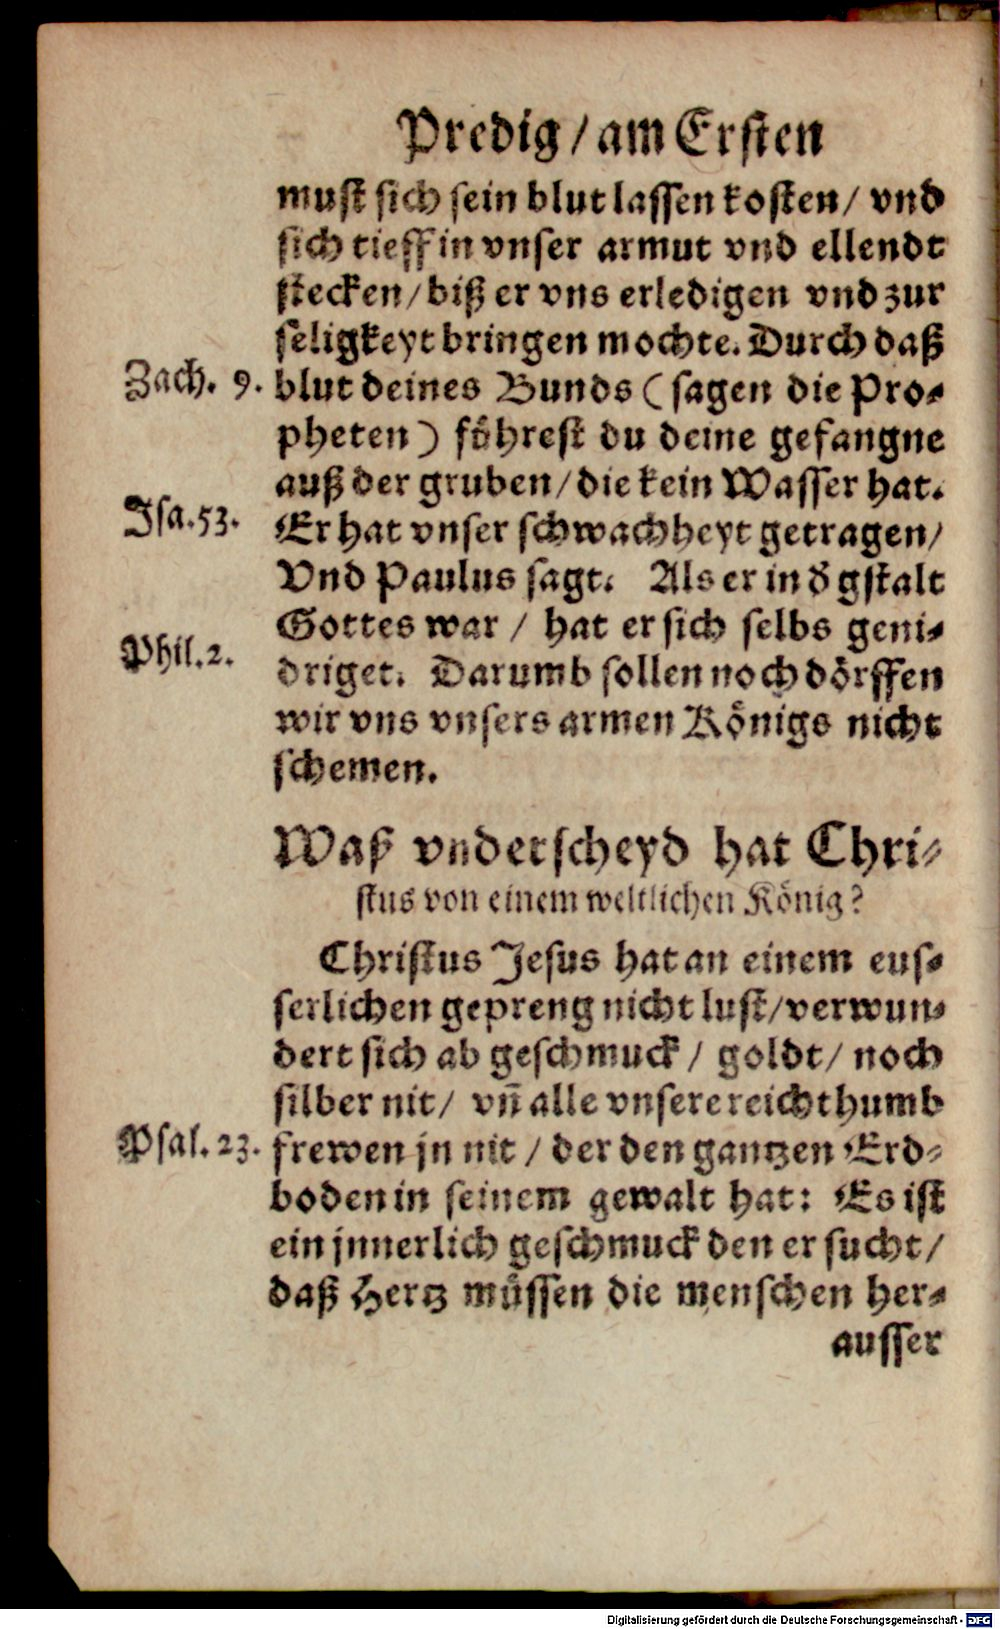 Predig / am Ersten
must sich sein blut lassen kosten / vnd
sich tieff in vnser armut vnd ellendt
stecken / biß er vns erledigen vnd zur
seligkeyt bringen mochte. Durch daß
Zach. 9. blut deines Bunds ( sagen die Pro-
pheten ) fůhrest du deine gefangne
auß der gruben / die kein Wasser hat.
Isa. 53. Er hat vnser schwachheyt getragen /
Vnd Paulus sagt. Als er in d̕ gstalt
Gottes war / hat er sich selbs geni-
Phil. 2. driget. Darumb sollen noch dörffen
wir vns vnsers armen Königs nicht
schemen.
Waß vnderscheyd hat Chri-
stus von einem weltlichen König?
Christus Jesus hat an einem eus-
serlichen gepreng nicht lust / verwun-
dert sich ab geschmuck / goldt / noch
silber nit / vñ alle vnsere reichthumb
Psal. 23. frewen jn nit / der den gantzen Erd-
boden in seinem gewalt hat: Es ist
ein jnnerlich geschmuck den er sucht /
daß Hertz můssen die menschen her-
ausser
Digitalisierung gefördert durch die Deutsche Forschungsgemeinschaft - DFG